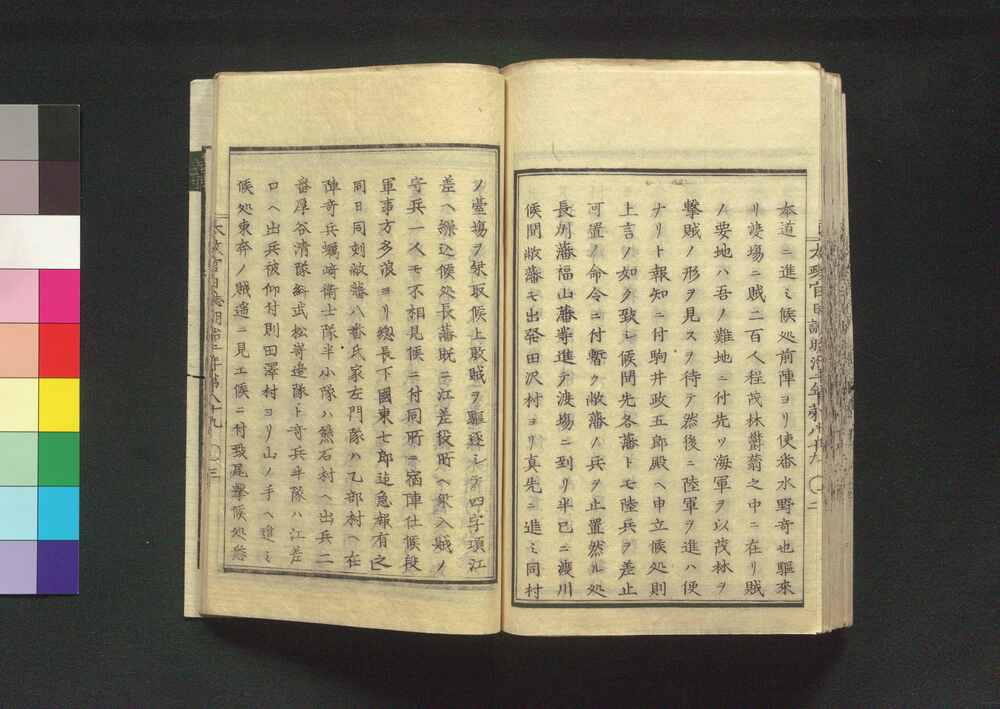 本道ニ進ミ候処前陣ヨリ使番水野奇也駆来
リ渡場ニ賊二百人程茂林欝蓊之中ニ在リ賊
ノ要地ハ吾ノ難地ニ付先ツ海軍ヲ以茂林ヲ
撃賊ノ形ヲ見スヲ待テ然後ニ陸軍ヲ進ハ便
ナリト報知ニ付駒井政五郎殿ヘ申立候処則
上言ノ如ク致シ候間先各藩トモ陸兵ヲ差止
可置ノ命令ニ付暫ク敝藩ノ兵ヲ止置然ル処
長州藩福山藩等進テ渡場ニ到リ半已ニ渡川
候間敝藩モ出発田沢村ヨリ真先ニ進ミ同村
太政官日誌明治二年第八十九 〇二
ノ臺場ヲ乗取候上敗賊ヲ駆逐シテ四字頃江
差ヘ繰込候処長藩既ニ江差役所ヘ乗入賊ノ
守兵一人モ不相見候ニ付同所ニ宿陣仕候段
軍事方多浪ヨリ総長下國東七郎迄急報有之
同日同刻敝藩八番氏家左門隊ハ乙部村ヘ在
陣奇兵蠣崎衛士隊半小隊ハ熊石村ヘ出兵二
番厚谷清隊糾武松嵜邉隊ト奇兵半隊ハ江差
口ヘ出兵被仰付則田澤村ヨリ山ノ手ヘ進ミ
候処東奔ノ賊遥ニ見エ候ニ付致尾撃候処悉
太政官日誌明治二年第八十九 〇三